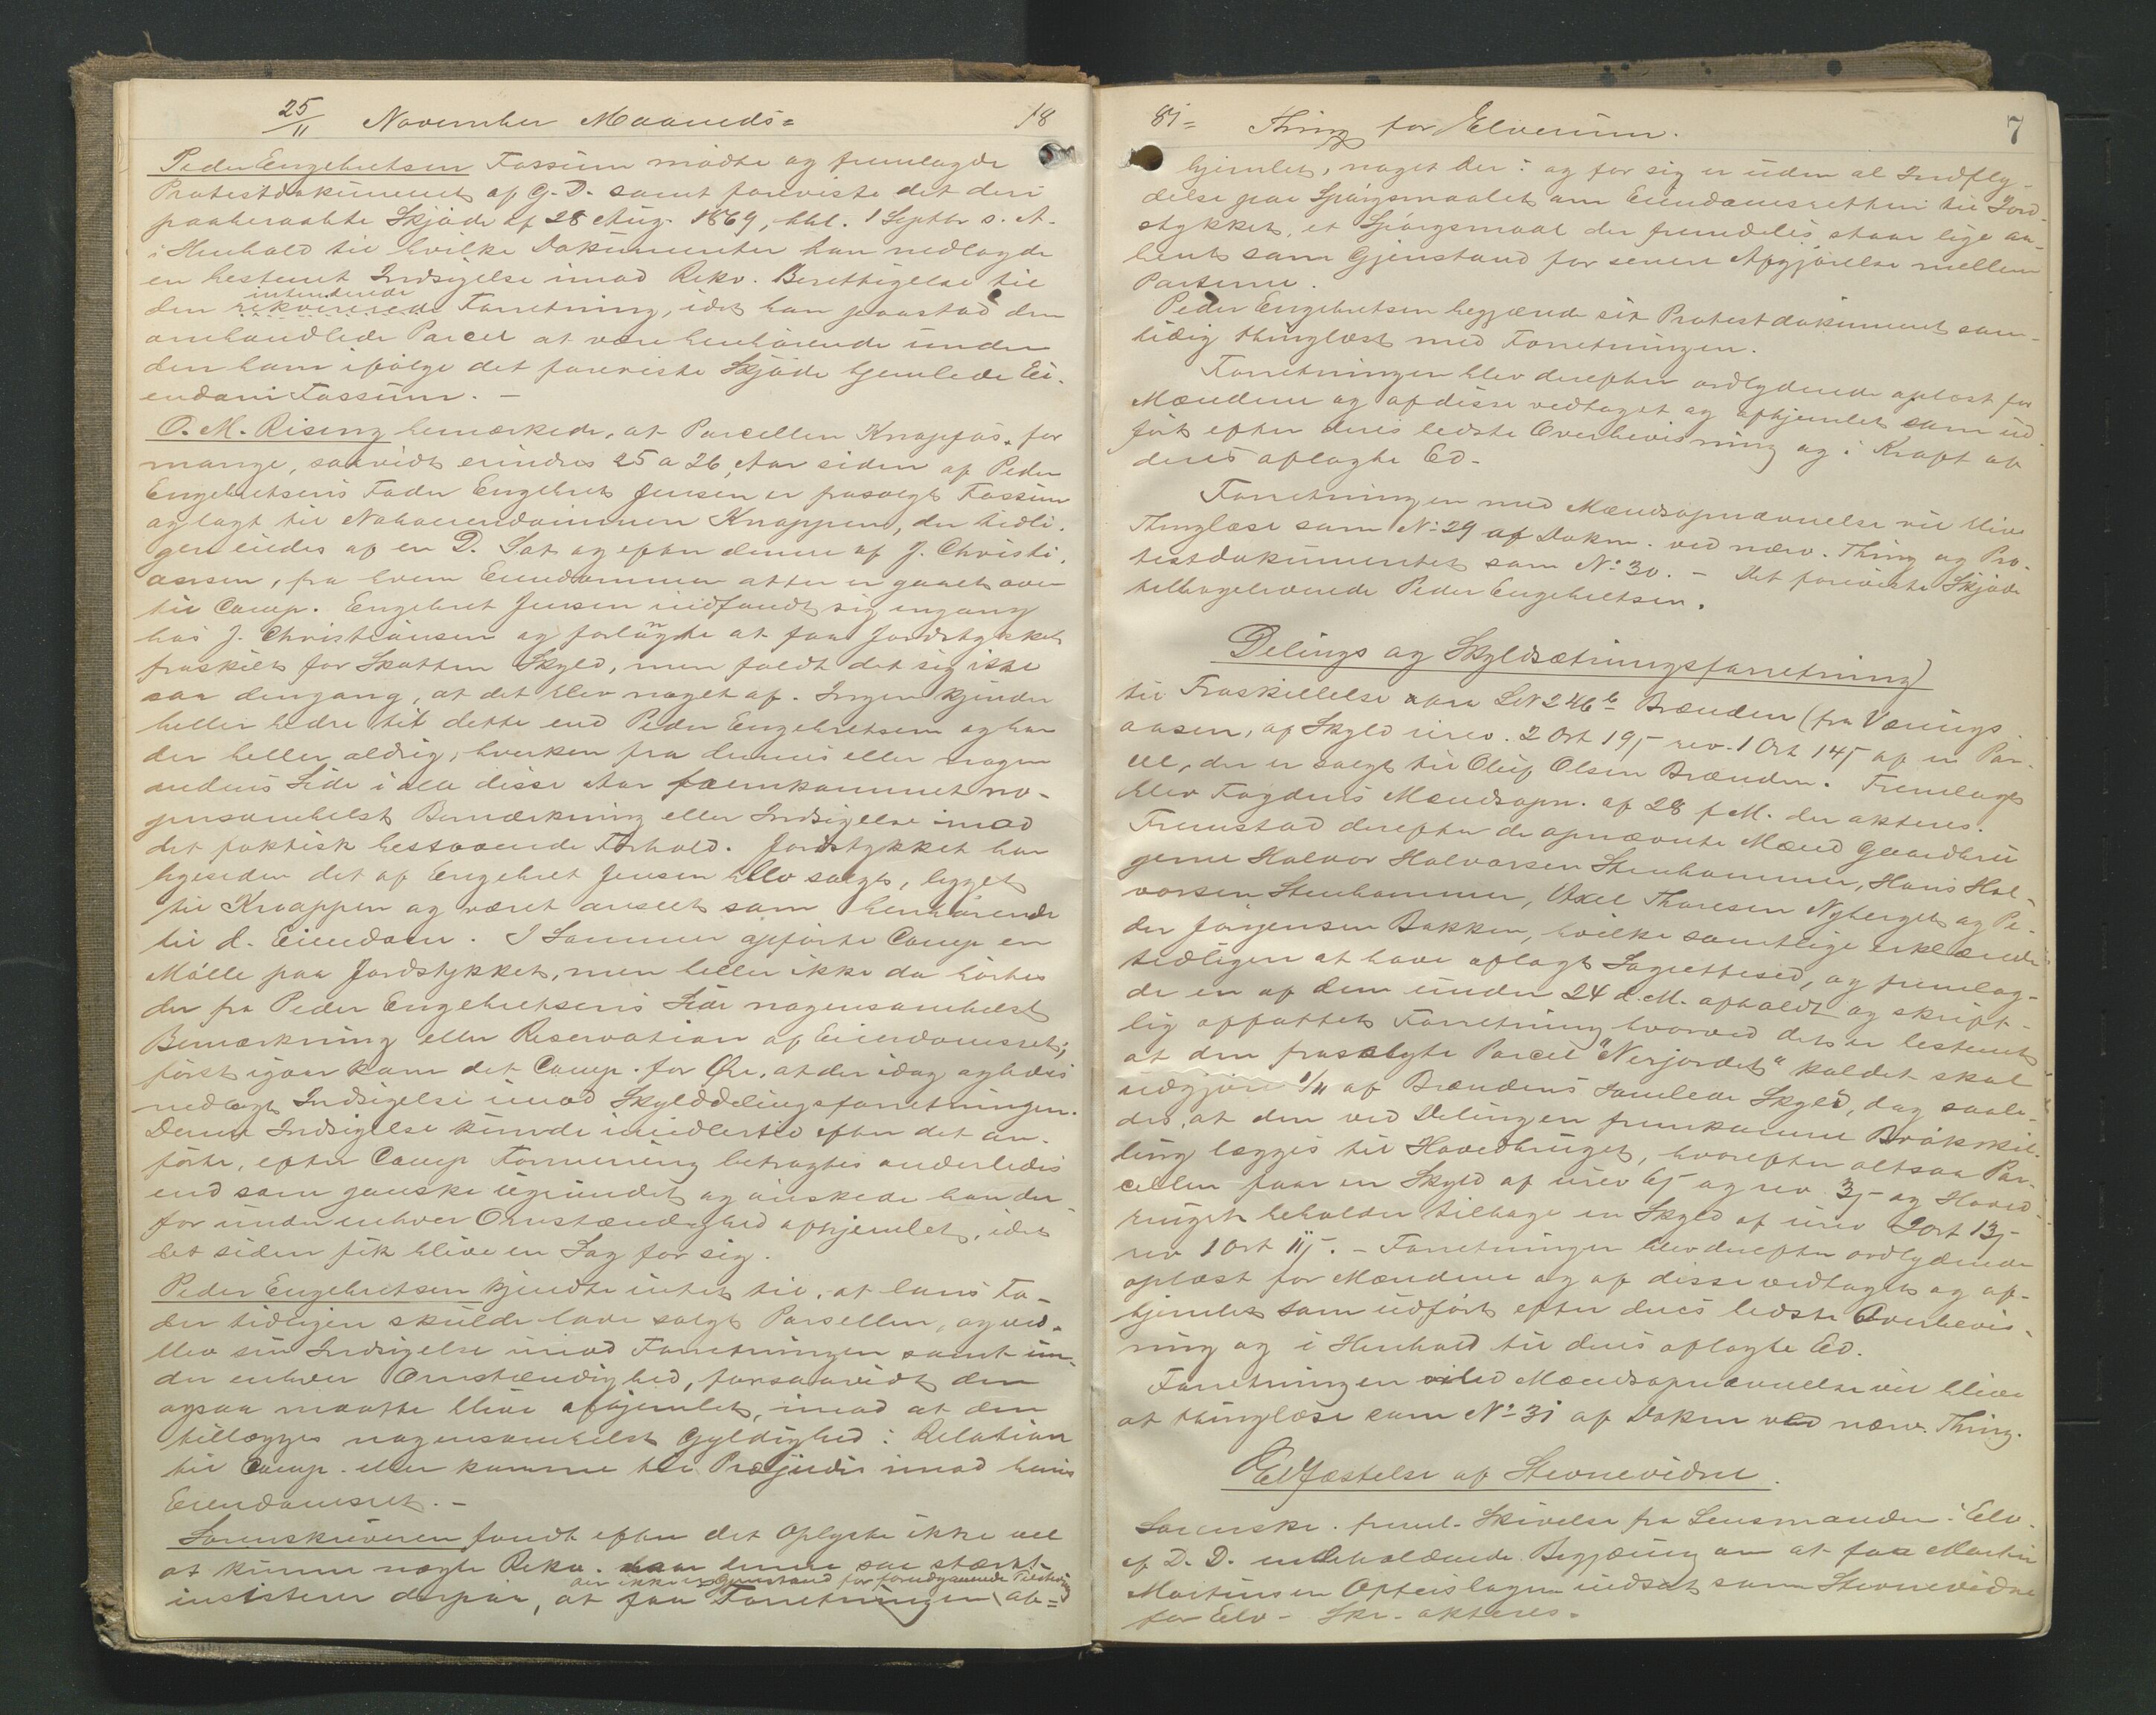 25/11 November Maaneds= 18
Peder Engebretsen Fossum mødte og fremlagde
Protestdokument af G. D. samt foreviste det deri
paaberaabte Skjøde af 28 Aug. 1869, thl. 1 Septbr s. A.
i Henhold til hvilke Dokumenter han nedlagde
en bestemt Indsigelse imod Rekv. Berettigelse til
intenderede
den rekvirerede Forretning, idet han paastod den
omhandlede Parcel at være henhørende under
den ham ifølge det foreviste Skjøde hjemlede Ei-
endom Fossum. –
O. M. Rising bemærkede, at Parcellen Knappas. for
mange, saavidt erindres 25 a 26, Aar siden af Peder
Engebretsens Fader Engebret Jensen er frasolgt Fossum
og lagt til Naboeiendommen Knappen, der tidli-
gere eiedes af en D. Sat og efter denne af J. Christi-
ansen, fra hvem Eiendommen atter er gaaet over
til Comp. Engebret Jensen indfandt sig engang
hos J. Christiansen og forlangte at faa Jordstykket
fraskilt for Skatten Skyld, men faldt det sig ikke
saa dengang, at det blev noget af. Ingen kjender
heller bedre til dette end Peder Engebretsen og har
der heller aldrig, hverken fra dennes eller nogen
andens Side i alle disse Aar fremkommet no-
gensomhelst Bemærkning eller Indsigelse imod
det faktisk bestaaende Forhold. Jordstykket har
ligesiden det af Engebret Jensen blev solgt, ligget
til Knappen og været anseet som henhørende
til d. Eiendom. I Sommer opførte Comp en
Mølle paa Jordstykket, men heller ikke da hørtes
der fra Peder Engebretsens Side nogensomhelst
Bemærkning eller Reservation af Eiendomsret;
først igaar kom det Comp. for Øre, at der idag agtedes
nedlagt Indsigelse imod Skylddelingsforretningen.
Denne Indsigelse kunde imidlertid efter det an-
førte, efter Comp Formening betragtes anderledes
end som ganske ugrundet og ønskede han der-
for under enhver Omstændighed afhjemlet, idet
det siden fik blive en Sag for sig.
Peder Engebretsen kjendte intet til, at hans Fa-
der tidligere skulde have solgt Parsellen, og ved-
blev sin Indsigelse imod Forretningen samt un-
der enhver Omstændighed, forsaavidt den
ogsaa maatte blive afhjemlet, imod at den
tillægges nogensomhelst Gyldighed i Relation
til Comp. eller komme til Præjudice imod hans
Eiendomsret. –
Sorenskriveren fandt efter det Oplyste ikke vel
at kunne nægte Rekv. naar denne saa stærkt
der ikke er Gjenstand for foregaaende
insisterer derpaa, at faa Forretningen af=
81= Thing for Elverum. 7
hjemlet, noget der i og for sig er uden al Indfly-
delse paa Spørgsmaalet om Eiendomsretten til Jord-
stykket, et Spørgsmaal der fremdeles staar lige aa-
bent som Gjenstand for senere Afgjørelse mellem
Parterne.
Peder Engebretsen begjærede sit Protestdokument sam-
tidig thinglæst med Forretningen.
Forretningen blev derefter ordlydende oplæst for
Mændene og af disse vedtaget og afhjemlet som ud-
ført efter deres bedste Overbevisning og i Kraft af
deres aflagte Ed.
Forretningen med Mændsopnævnelse vil blive
Thinglæse som No 29 af Dokm. ved nærv. Thing og Pro-
testdokumentet som No 30. – Det foreviste Skjøde
tilbageleverede Peder Engebretsen.
Delings og Skyldsætningsforretning
til Fraskillelse fra LN 246 b Brænden (fra Værings
aasen, af Skyld urev. 2 Ort 19 s rev. 1 Ort 14 s af en Par-
cel, der er solgt til Oluf Olsen Brænden. Fremlagt
blev Fogdens Mændsopn. af 28 f M. der akteres.
Fremstod derefter de opnævnte Mænd Gaardbru-
gerne Halvor Halvorsen Stenhammer, Hans Hal-
vorsen Stenhammer, Axel Thoresen Nyberget og Pe-
der Jørgensen Bakken, hvilke samtlige erklærede
tidligere at have aflagt Lagrettesed, og fremlag-
de en af dem under 24 d. M. afholdt og skrift-
lig affattet Forretning hvorved det er bestemt
at den frasolgte Parcel "Nerjordet" kaldet skal
udgjøre 1/11 af Brændens samlede Skyld, dog saale-
des, at den ved Delingen fremkomne Brøkskil-
ling lægges til Hovedbruget, hvorefter altsaa Par-
cellen faar en Skyld af urev 6 s og rev 3 s og Hoved-
bruget beholder tilbage en Skyld af urev 2 Ort 13 s
rev 1 Ort 11 s. – Forretningen blev derefter ordlydende
oplæst for Mændene og af disse vedtaget og af-
hjemlet som udført efter deres bedste Overbevis-
ning og i Henhold til deres aflagte Ed.
Forretningen med Mændsopnævnelse vil blive
at thinglæse som No 31 af Dokm ved nærv. Thing.
Edfæstelse af Stevnevidne.
Sorenskr. freml. Skrivelse fra Lensmanden i Elv.
af D. D. indeholdende Begjæring om at faa Martin
Martinsen indsat som Stevnevidne
for Elv – Skr. akteres.